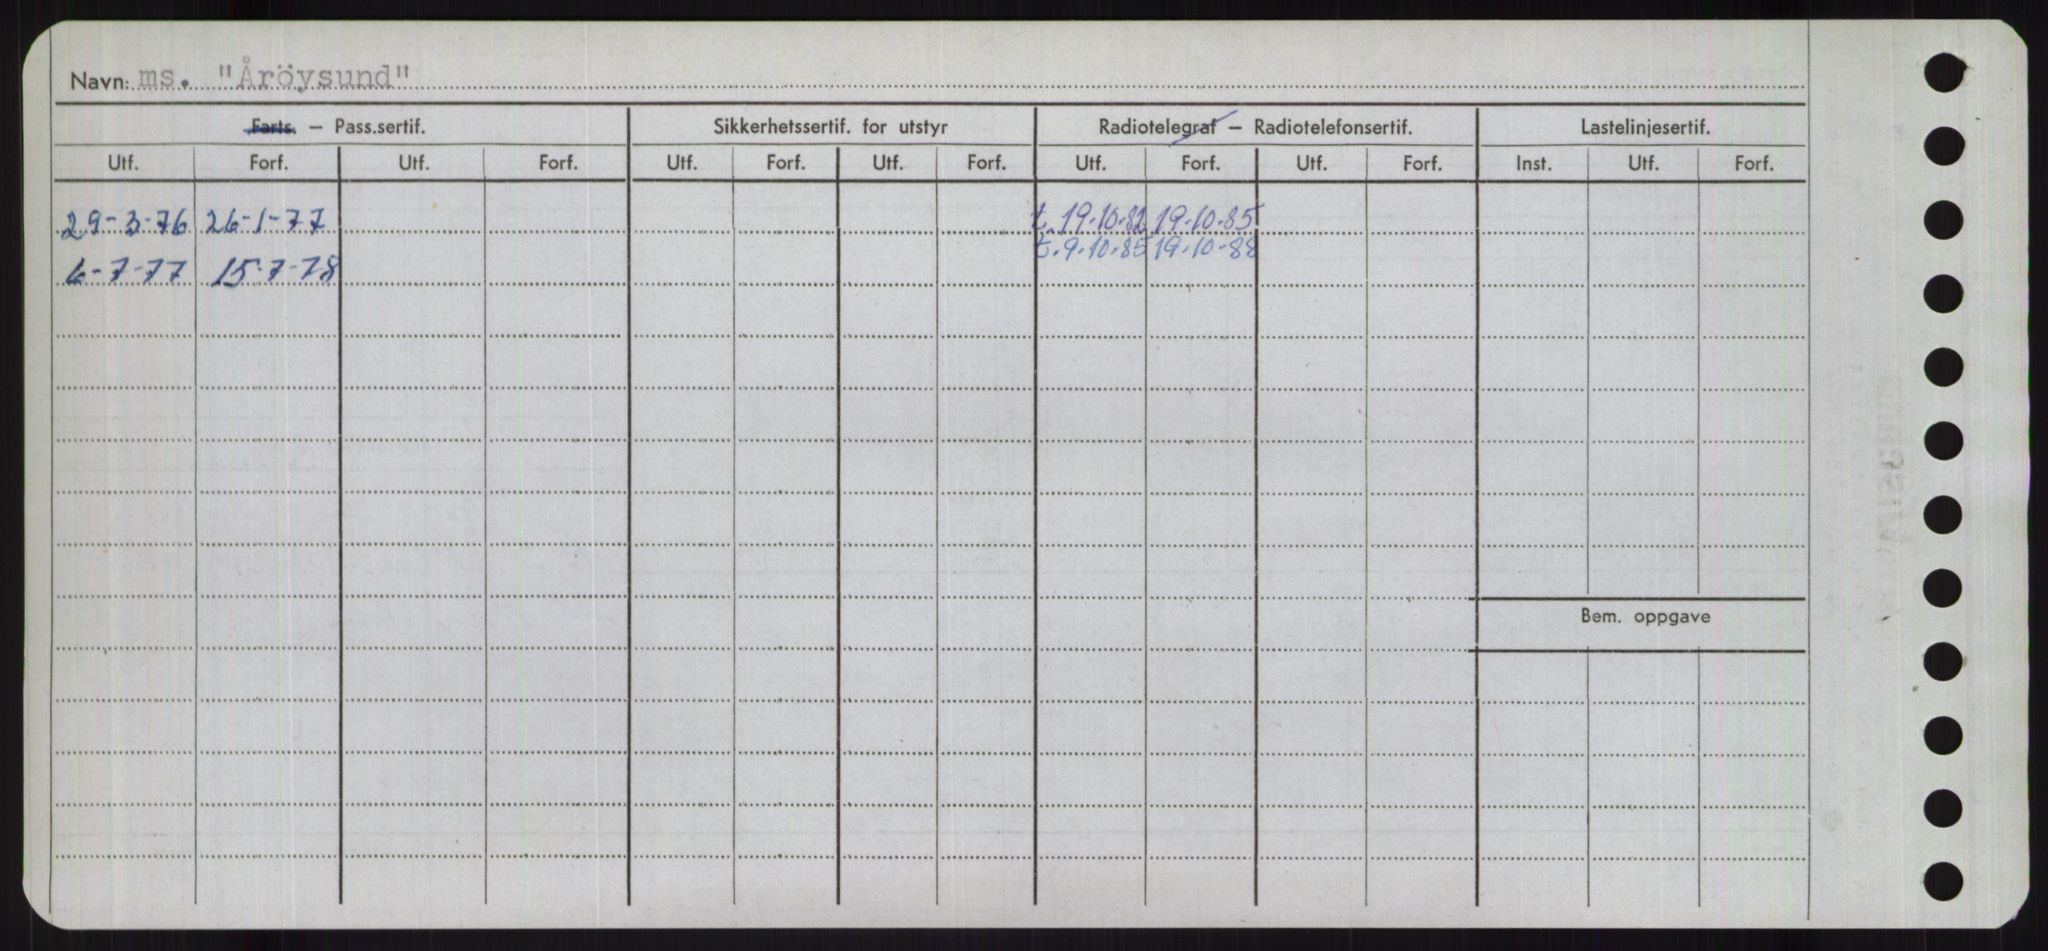 Navn: ms. "Åröysund"
Farts. – Pass.sertif. Sikkerhetssertif. for utstyr Radiotelegraf – Radiotelefonsertif. Lastelinjesertif.
Utf. Forf. Utf. Forf. Utf. Forf. Utf. Forf. Utf. Forf. Utf. Forf. Inst. Utf. Forf.
29-3-76 26-1-77 t. 19-10-82 19-10-85
t. 9-10-85 19-10-88
6-7-77 15-7-78
Bem. oppgave